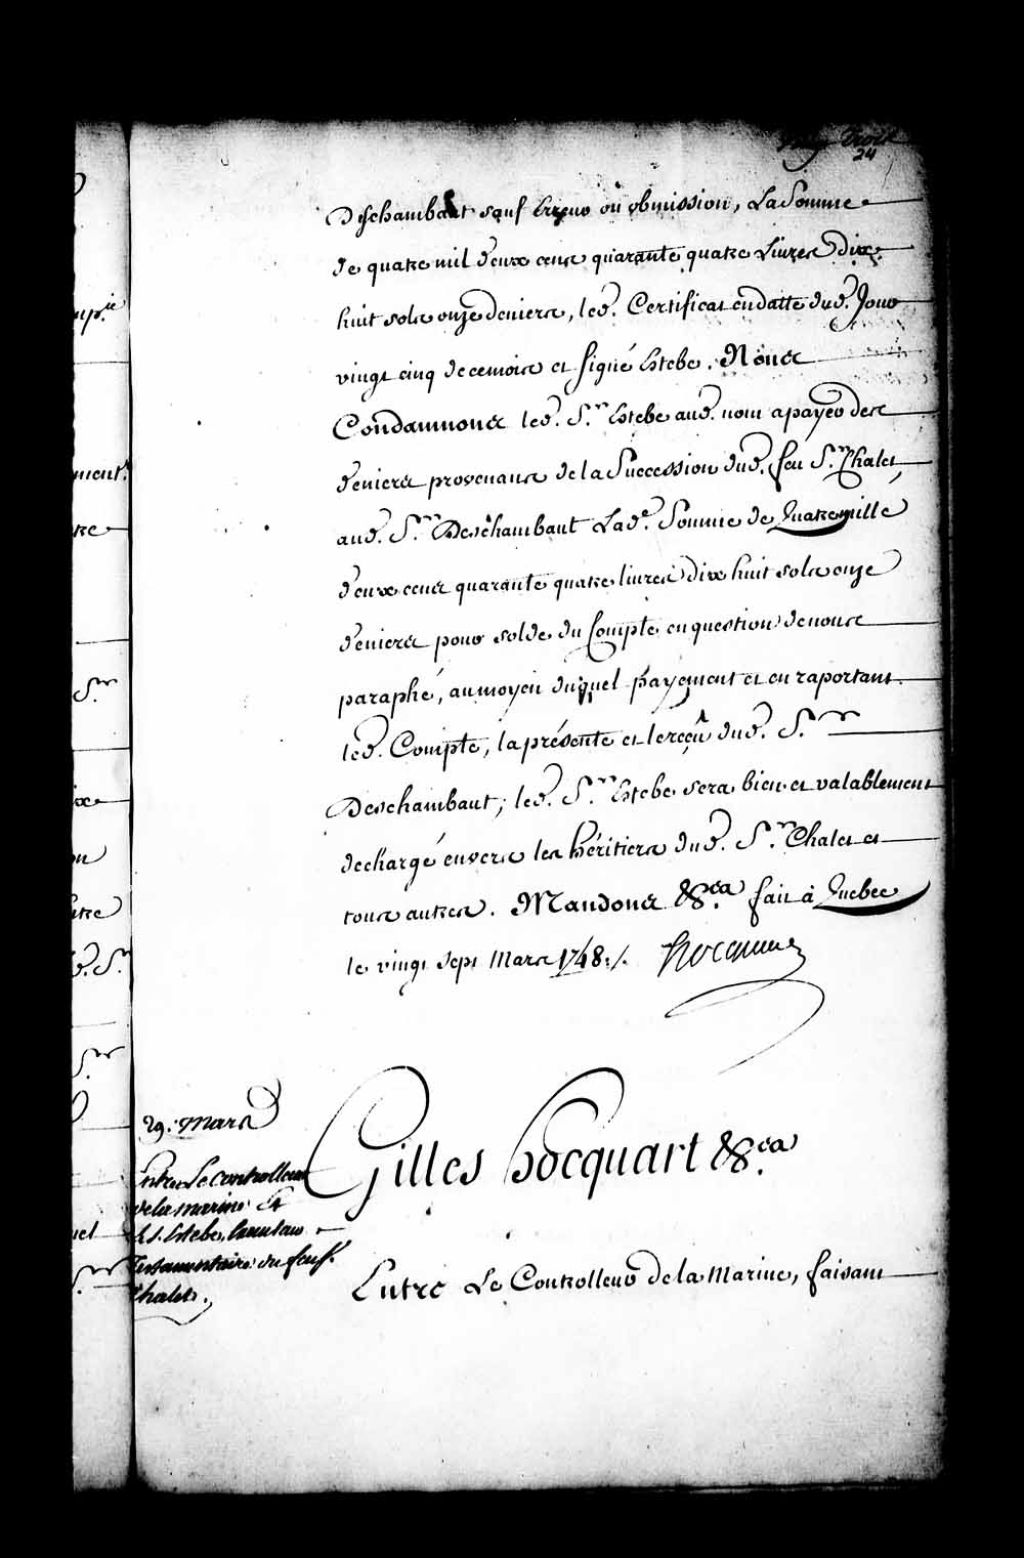 24
Deschambaut sauf Erreur ou obmission, La Somme
de quatre mil deux cens quarante quatre Livres dix
huit sols onze deniers, led. Certificat en datte dud. Jour
vingt cinq decembre et signé Estebe. Nous
Condamnons led. S.r Estebe aud. nom a payer des
deniers provenans de la Succession dud. feu S.r Chalet,
aud. S.r Deschambaut Lad.e Somme de Quatremille
deux cens quarante quatre livres dix huit sols onze
deniers pour solde du Compte en question de nous
paraphé, au moyen duquel payement et en raportant
led. Compte, la présente et le reçû dud. S.r
Deschambaut; led. S.r Estebe sera bien et valablement
dechargé envers les héritiers dud. S.r Chalet et
tous autres. Mandons &c.a fait à Quebec
le vingt sept Mars 1748 ;/. Hocquart
29. Mars
Entre Le Controlleur
de la marine Et
Le S. Estebe, Executeur
Testamentaire du feu S.
Chalet.
Gilles hocquart &c.a
Entre Le Controlleur de la Marine, faisant
up.ie
ment.
tre
S.r
ixe
on
utre
d. S.r
S.r
uel
S.r